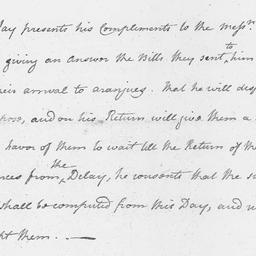 Jay presents his Compliments to the Messrs.
giving an Answer the Bills they sent to him
their arrival to aranjues. that he will
and on his Return will give them a
favor of them to wait till the Return of the
from the Delay, he consents that the
shall be computed from this Day, and
them. —